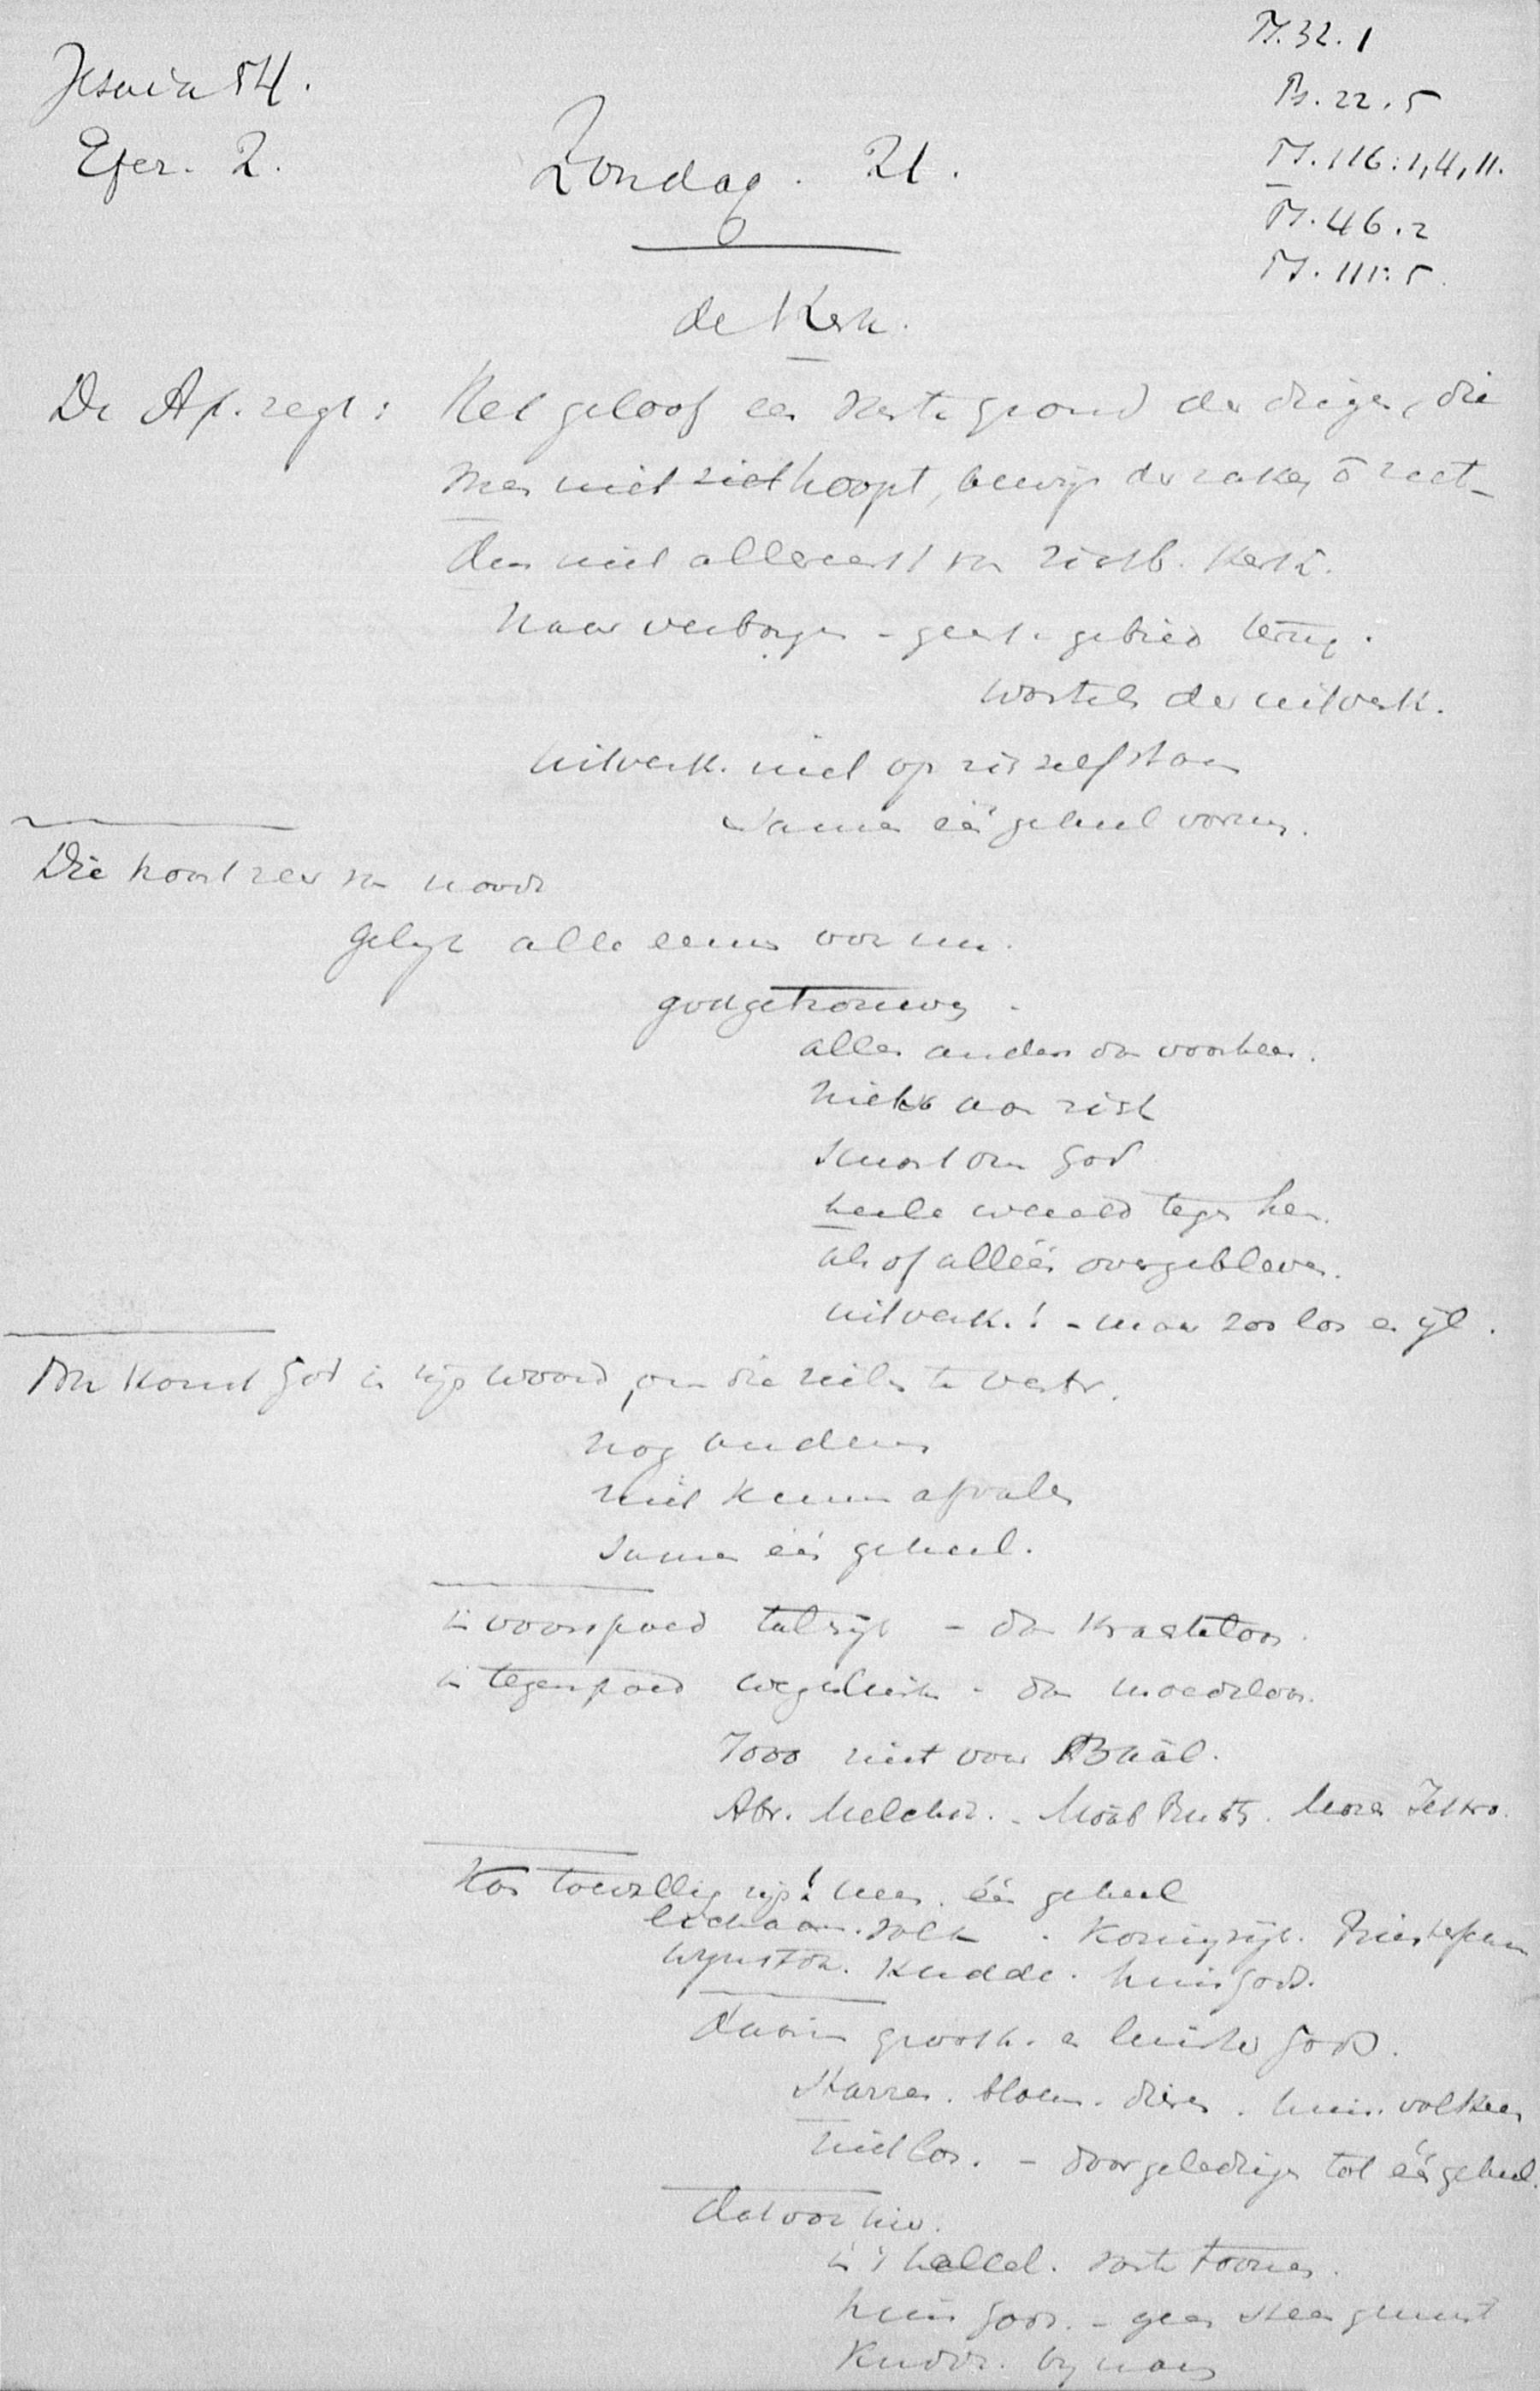 Jesaia 54.
Efez. 2.
Ps. 32. 1
Ps. 22. 5
Ps. 116: 1, 4, 11.
Ps. 46. 2
Ps. 111: 5.
Zondag. 21.
de Kerk.
De Ap. zegt: Het geloof een vaste grond der dingen, die
men niet ziet hoopt, bewijs der zaken
Dus niet allereerst zichtb. Kerk.
Naar verborgen - geest. gebied terug.
wortels der uitverk.
Uitverk. niet op zich zelf staan
samen één geheel vormen.
Die komt zeer
alle eeuw
godgetrouwen -
alles anders dan voorheen.
niets aan zich
om God
heele wereld tegen hen.
alsof alléén overgebleven.
uitverk.! - maar zoo los en ijl.
Dan komt God in zijn woord, om die zielen te verst.
nog anderen
niet kunnen afvallen
samen één geheel.
in voorspoed talrijk - dan krachteloos.
in tegenspoed - dan moedeloos.
7000 niet voor Baäl.
Abr. Melchiz. - Moab Ruth. Mozes Jethro.
Kan toevallig zijn! neen. één geheel
lichaam. volk. Koningrijk. Priesterschaar
wijnstok. Kudde. huis Gods.
daarin grooth. en luister Gods.
Starren. bloem. dieren. huis. volkeren
niet los. - door geledingen tot één geheel.
dat voor hier.
in 't toonen.
huis Gods. - geen steen gemist
Kudde. bij naam